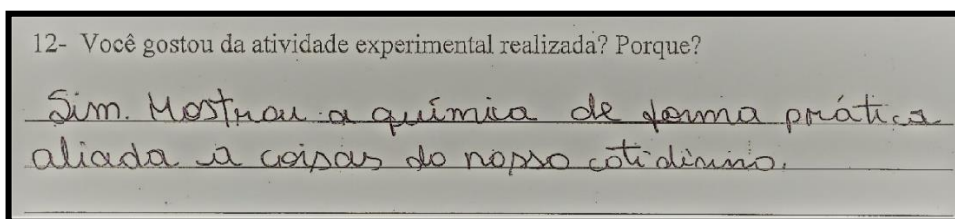 12- Você gostou da atividade experimental realizada? Porque?
Sim. Mostrou a química de forma prática
aliada à coisas do nosso cotidiano.